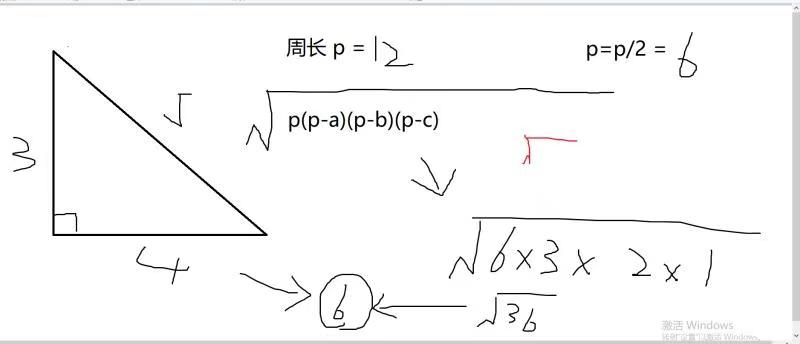 周长 p = 12
p=p/2 = 6
5
√p(p-a)(p-b)(p-c)
3
√
√6×3×2×1
4
6
√36
激活 Windows
转到"设置"以激活 Windows。